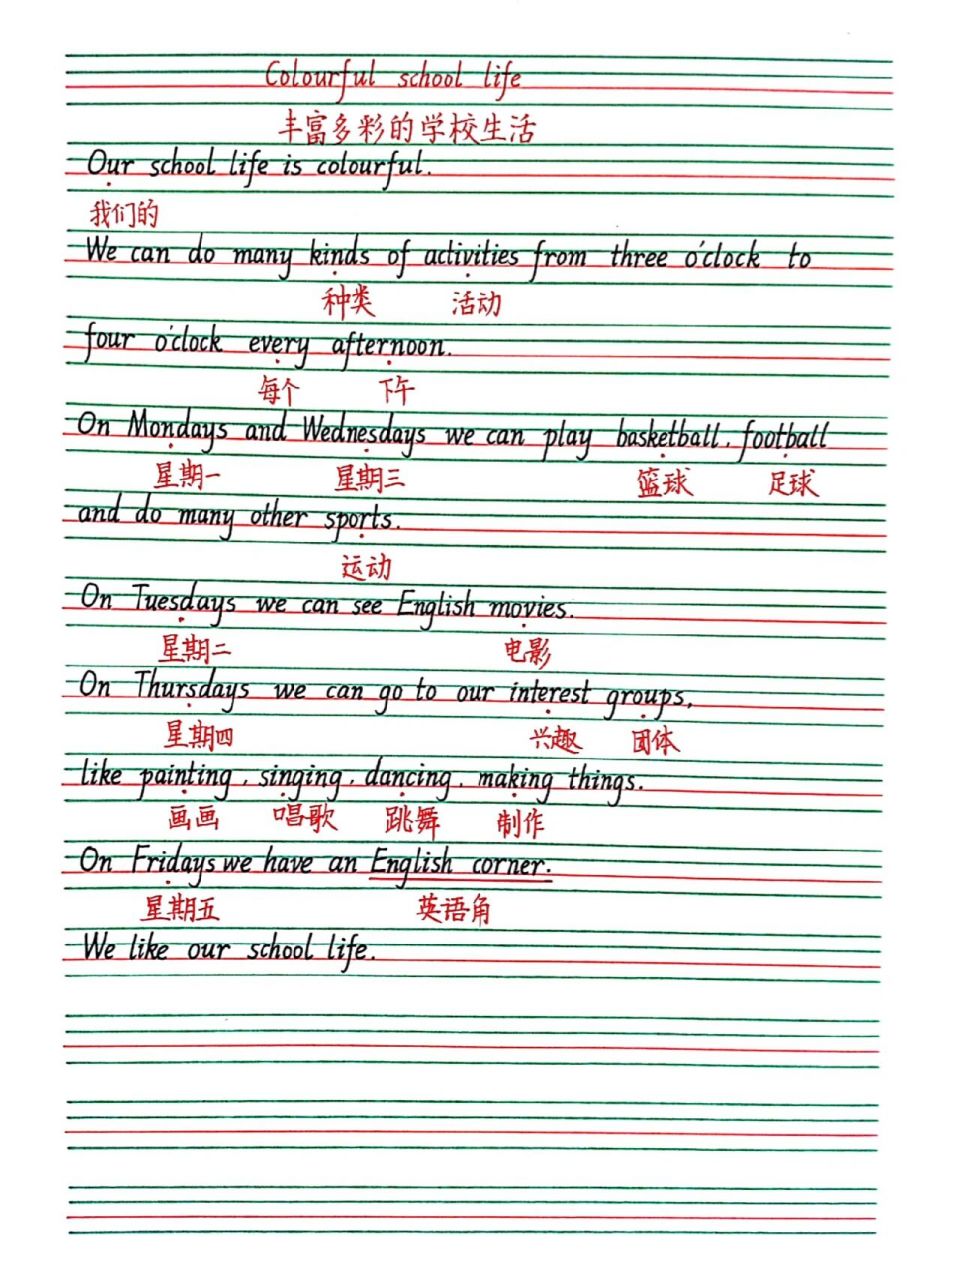 Colourful school life
丰富多彩的学校生活
Our school life is colourful.
我们的
We can do many kinds of activities from three o'clock to
种类 活动
four o'clock every afternoon.
每个 下午
On Mondays and Wednesdays we can play basketball, football
星期一 星期三 篮球 足球
and do many other sports.
运动
On Tuesdays we can see English movies.
星期二 电影
On Thursdays we can go to our interest groups,
星期四 兴趣 团体
like painting, singing, dancing, making things.
画画 唱歌 跳舞 制作
On Fridays we have an English corner.
星期五 英语角
We like our school life.